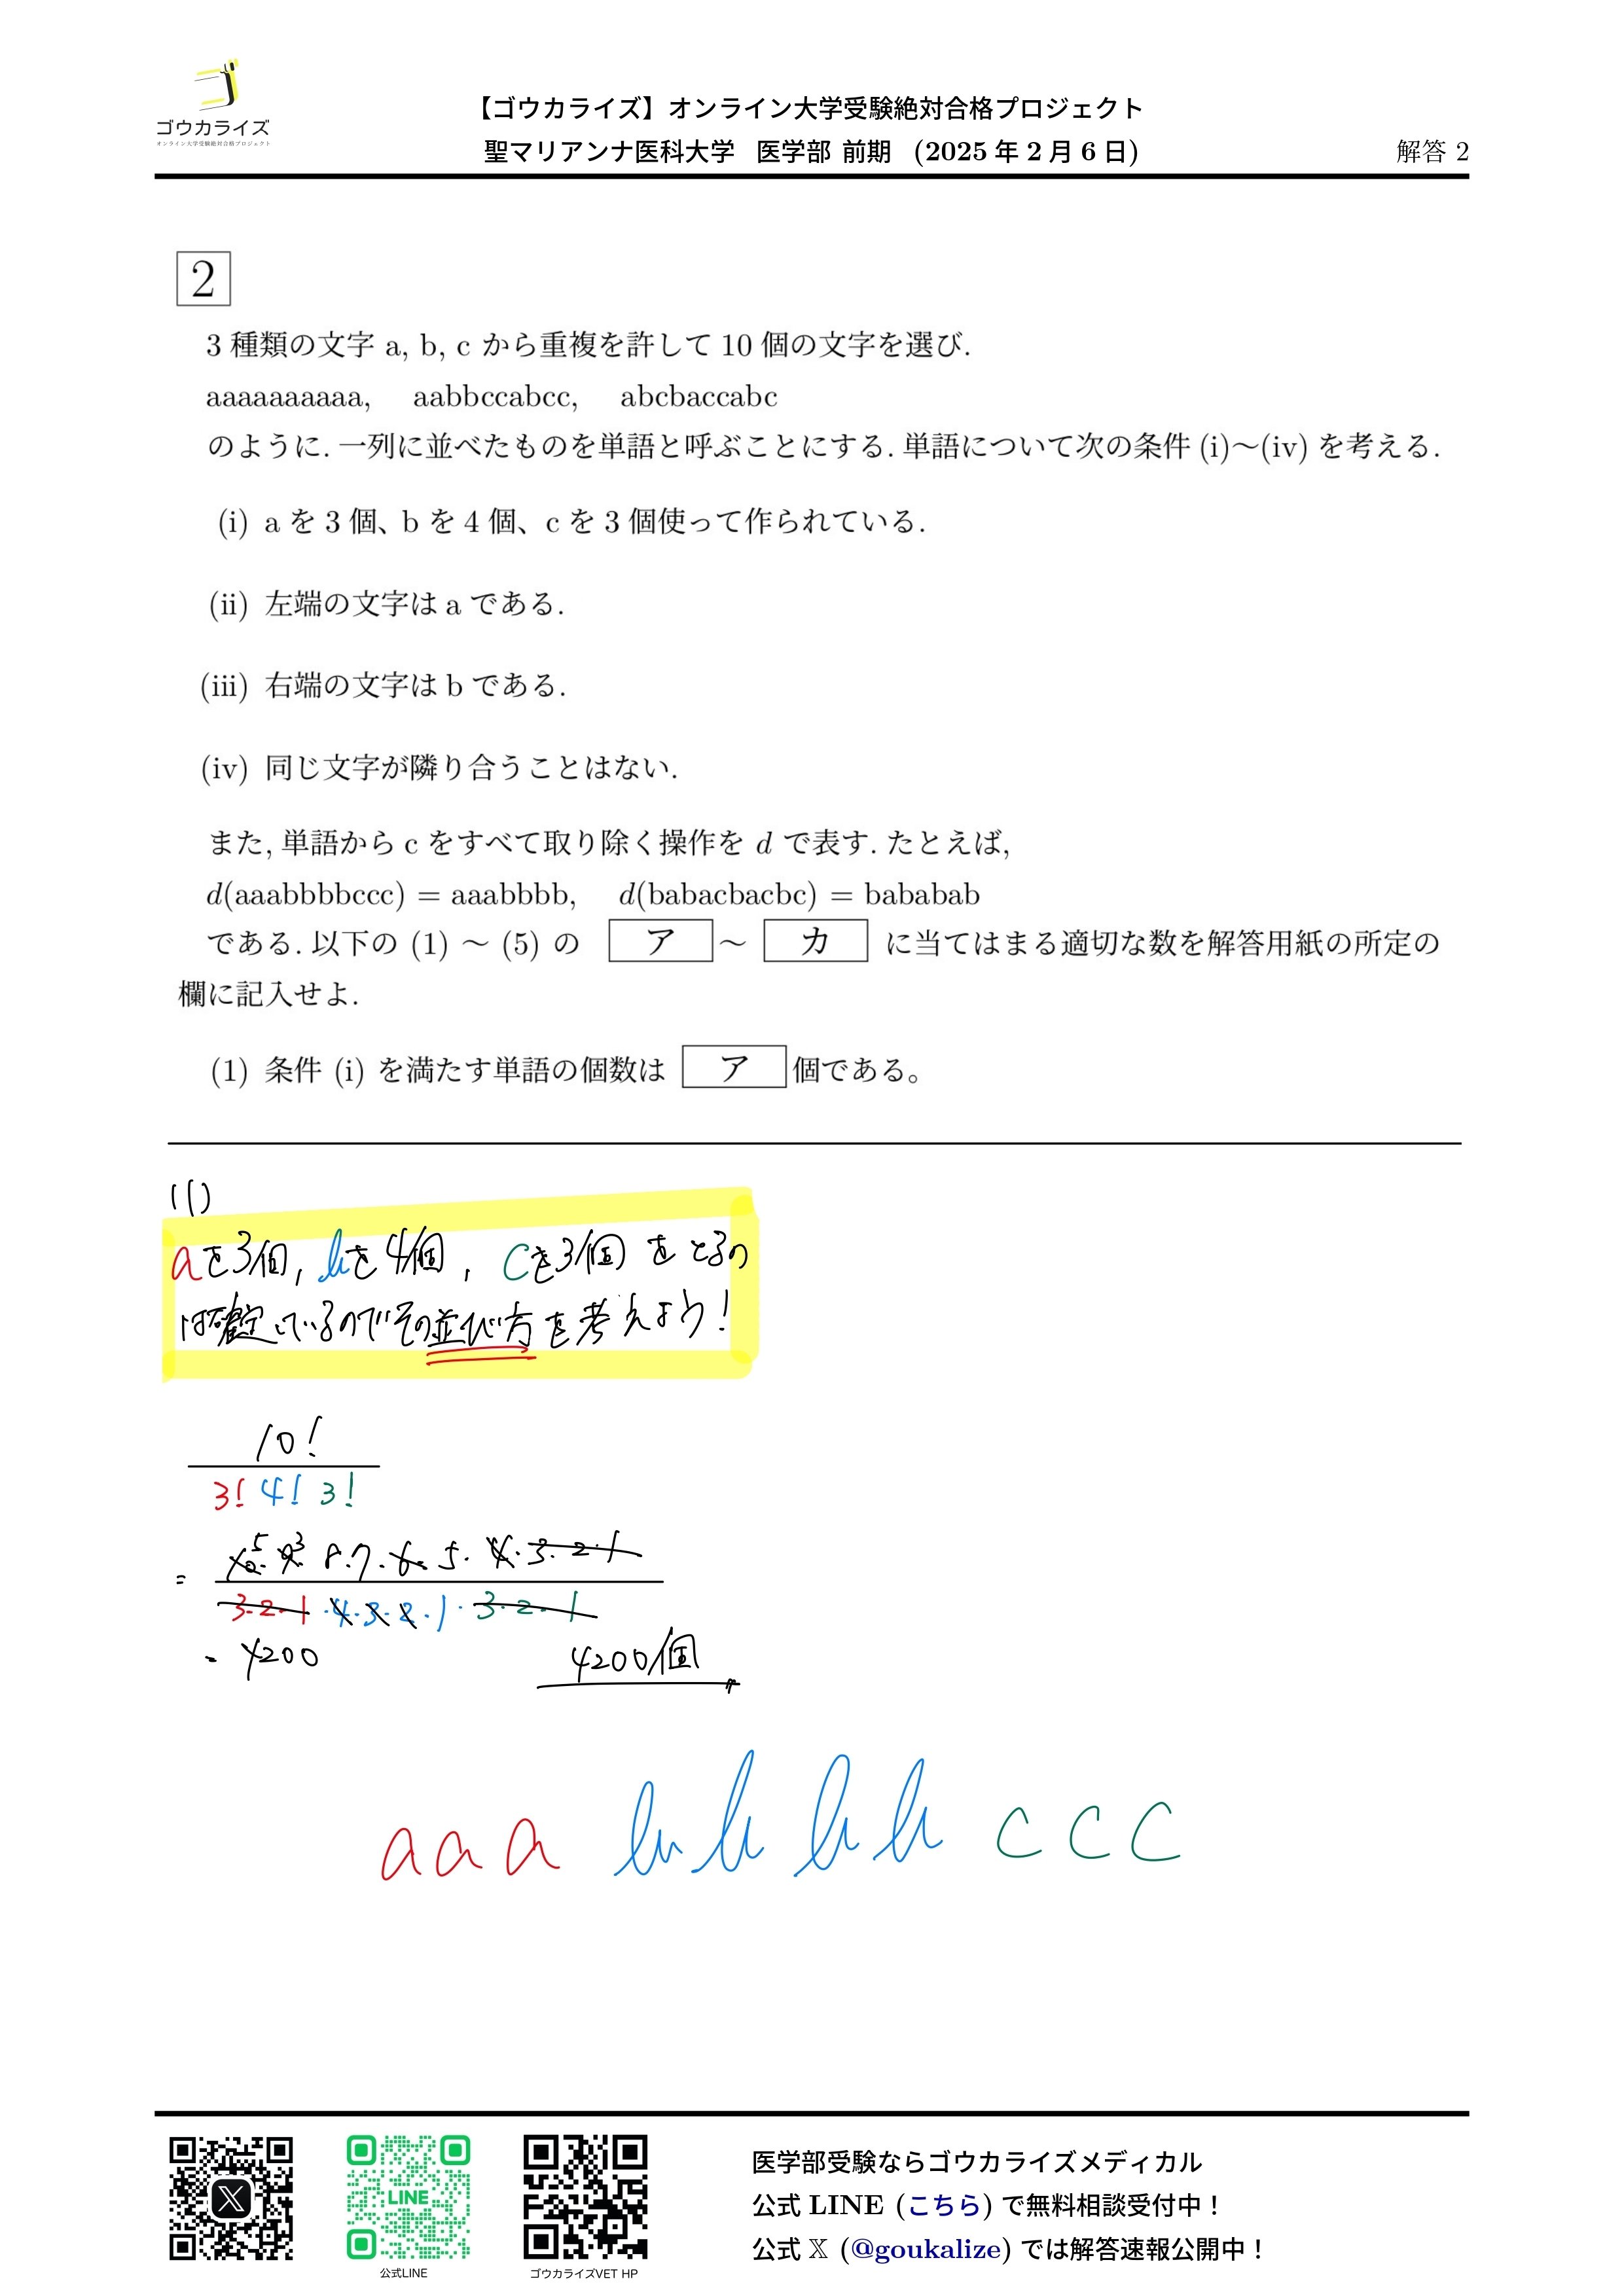 ゴウカライズ
オンライン大学受験絶対合格プロジェクト
【ゴウカライズ】オンライン大学受験絶対合格プロジェクト
聖マリアンナ医科大学 医学部 前期 (2025 年 2 月 6 日)
解答 2
2
3 種類の文字 a, b, c から重複を許して 10 個の文字を選び.
aaaaaaaaaa, aabbccabcc, abcbaccabc
のように. 一列に並べたものを単語と呼ぶことにする. 単語について次の条件 (i)〜(iv) を考える.
(i) a を 3 個、b を 4 個、c を 3 個使って作られている.
(ii) 左端の文字は a である.
(iii) 右端の文字は b である.
(iv) 同じ文字が隣り合うことはない.
また, 単語から c をすべて取り除く操作を d で表す. たとえば,
d(aaabbbbccc) = aaabbbb, d(babacbacbc) = bababab
である. 以下の (1) 〜 (5) の ア 〜 カ に当てはまる適切な数を解答用紙の所定の
欄に記入せよ.
(1) 条件 (i) を満たす単語の個数は ア 個である。
(1)
aを3個, bを4個, cを3個 をとるの
は確定しているのでその並び方を考えよう!
10!
3! 4! 3!
= 10・5 9・3 8・7・6・5・4・3・2・1
3・2・1・4・3・2・1・3・2・1
= 4200 4200個
a a a b b b b c c c
LINE
公式LINE
ゴウカライズVET HP
医学部受験ならゴウカライズメディカル
公式 LINE (こちら) で無料相談受付中！
公式 𝕏 (@goukalize) では解答速報公開中！